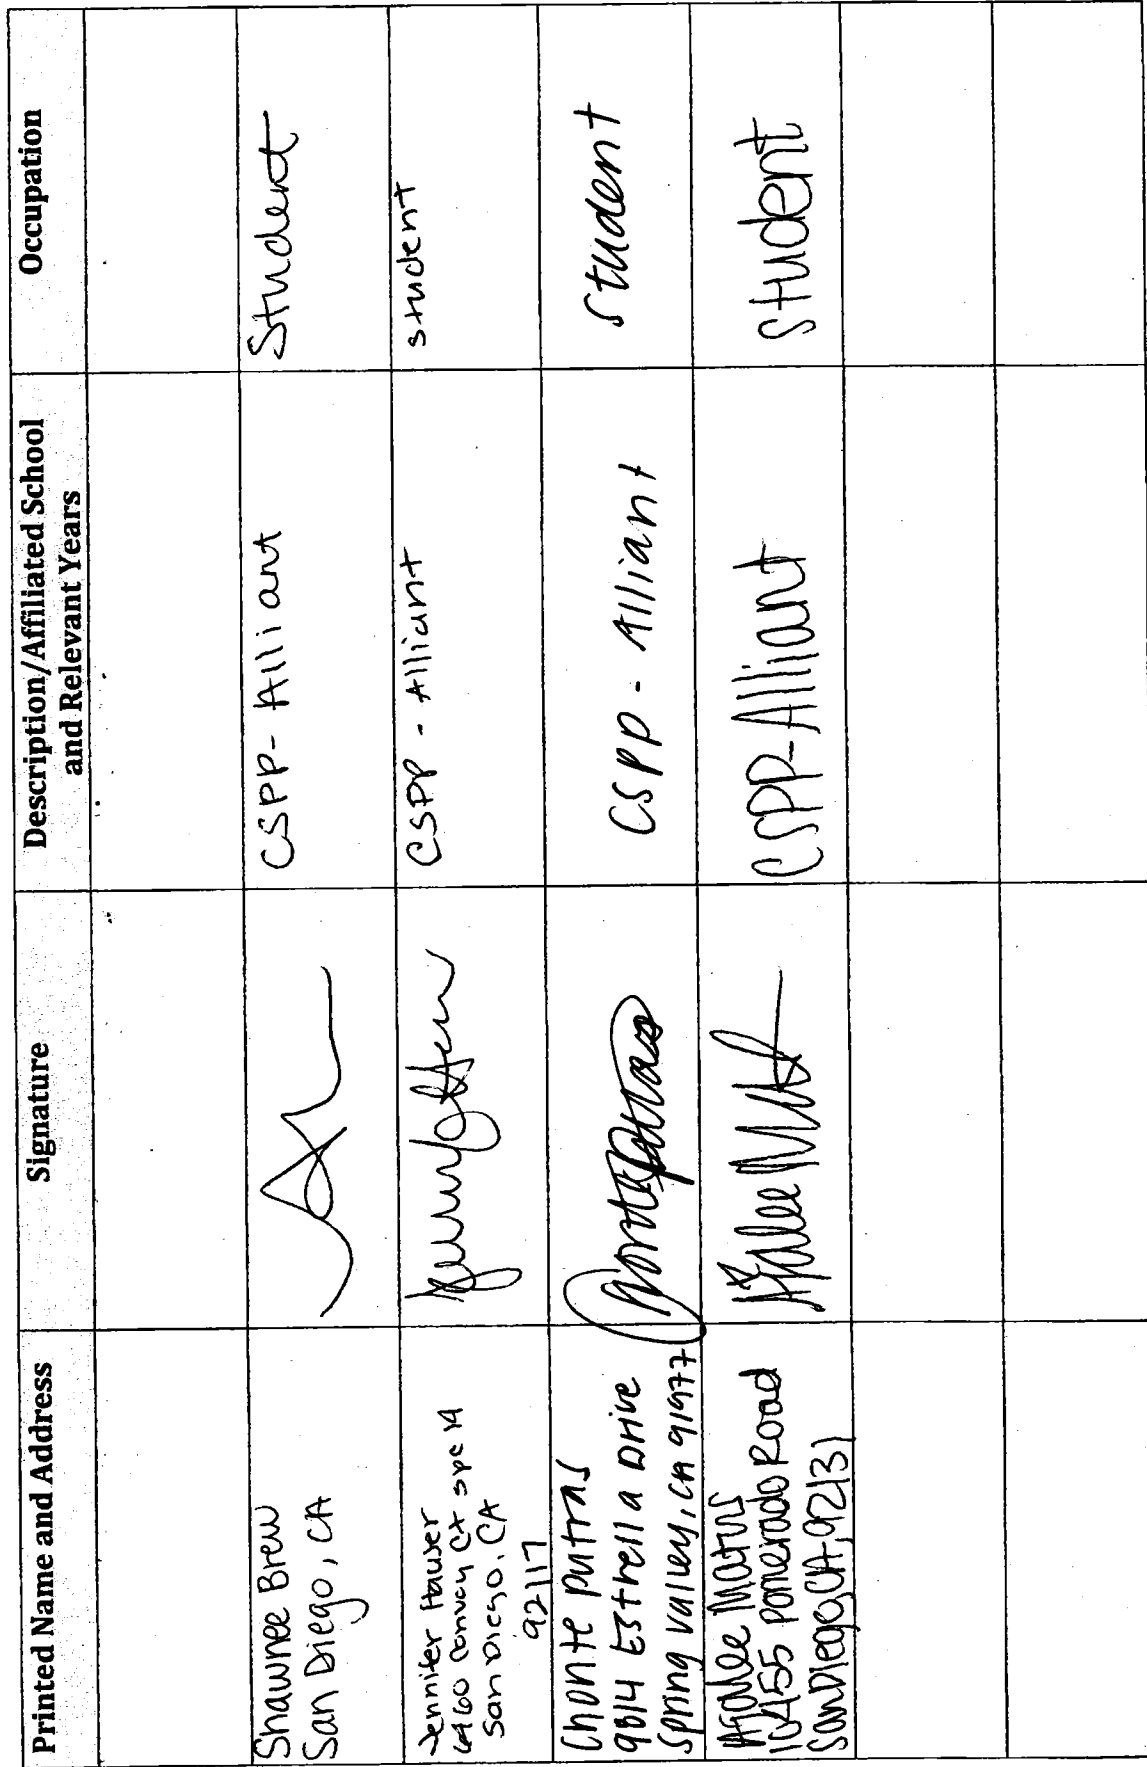 Printed Name and Address
Signature
Description/Affiliated School
and Relevant Years
Occupation
Shawnee Brew
San Diego, CA
CSPP-Alliant
Student
Jennifer Hauser
Convoy Ct spc
San Diego, CA
92117
CSPP - Alliant
student
Chonte Patras
9814 Estrella Drive
Spring Valley, CA 91977
CSPP - Alliant
student
Matus
10455 Pomerado Road
San Diego, CA, 92131
CSPP-Alliant
Student